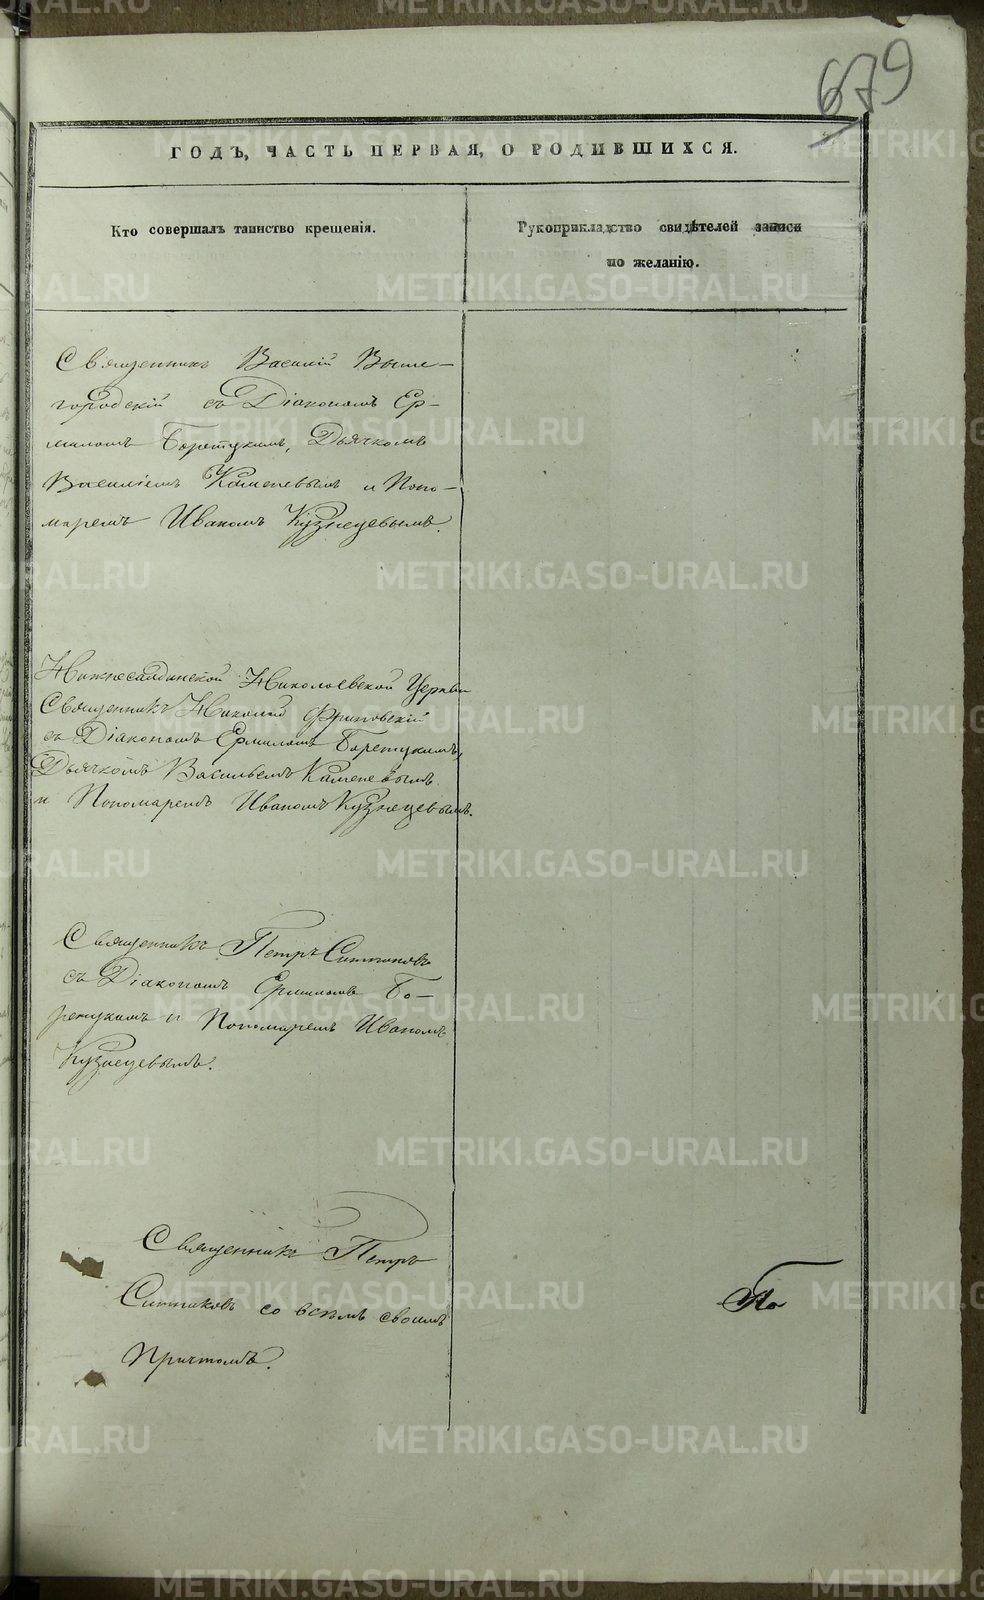 679
ГОДЪ, ЧАСТЬ ПЕРВАЯ, О РОДИВШИХСЯ.
Кто совершалъ таинство крещенія.
Рукоприкладство свидѣтелей записи
по желанію.
Священникъ Василій Выше-
городскій съ Діакономъ Ер-
миломъ Боретскимъ, Дьячкомъ
Василіемъ Каменевымъ и Поно-
маремъ Иваномъ Кузнецевымъ.
Нижнесалдинской Николаевской Церкви
Священникъ Николай
съ Діакономъ Ермиломъ Боретскимъ,
Дьячкомъ Васильемъ Каменевымъ
и Пономаремъ Иваномъ Кузнецевымъ.
Священникъ Петръ Ситниковъ
съ Діакономъ Ермиломъ Бо-
ретскимъ и Пономаремъ Иваномъ
Кузнецевымъ.
Священникъ Петръ
Ситниковъ со всѣмъ своимъ
Причтомъ.
По
METRIKI.GASO-URAL.RU